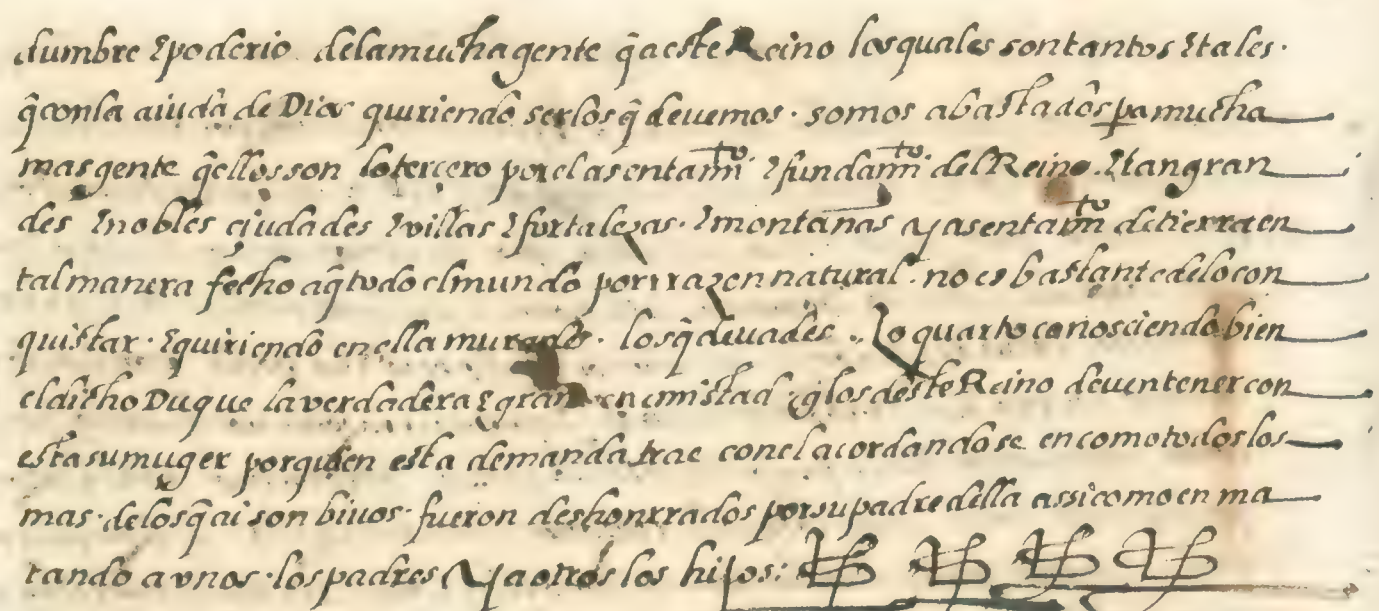 dumbre & poderio dela mucha gente q̃ a este Reino los quales son tantos & tales.
q̃ con la aiuda de Dios quiriendo ser los q̃ deuemos. somos abastados pa mucha
mas gente q̃ellos son lo tercero por el asentamito & fundamito del Reino. & tan gran
des & nobles çiudades & villas & fortalezas. & montanas y asentamito de tierra en
tal manera fecho a q̃ todo el mundo por rrazon natural. no es bastante de lo con
quistar. & quiriendo en ella los q̃ . Lo quarto conosciendo bien
el dicho Duque la verdadera & gran enemistad q̃ los deste Reino deuen tener con
esta su muger por quien esta demanda trae con el acordandose en como todos los
mas. de los q̃ ai son biuos. fueron deshonrrados por su padre della assi como en ma
tando a vnos. los padres y a otros los hijos: